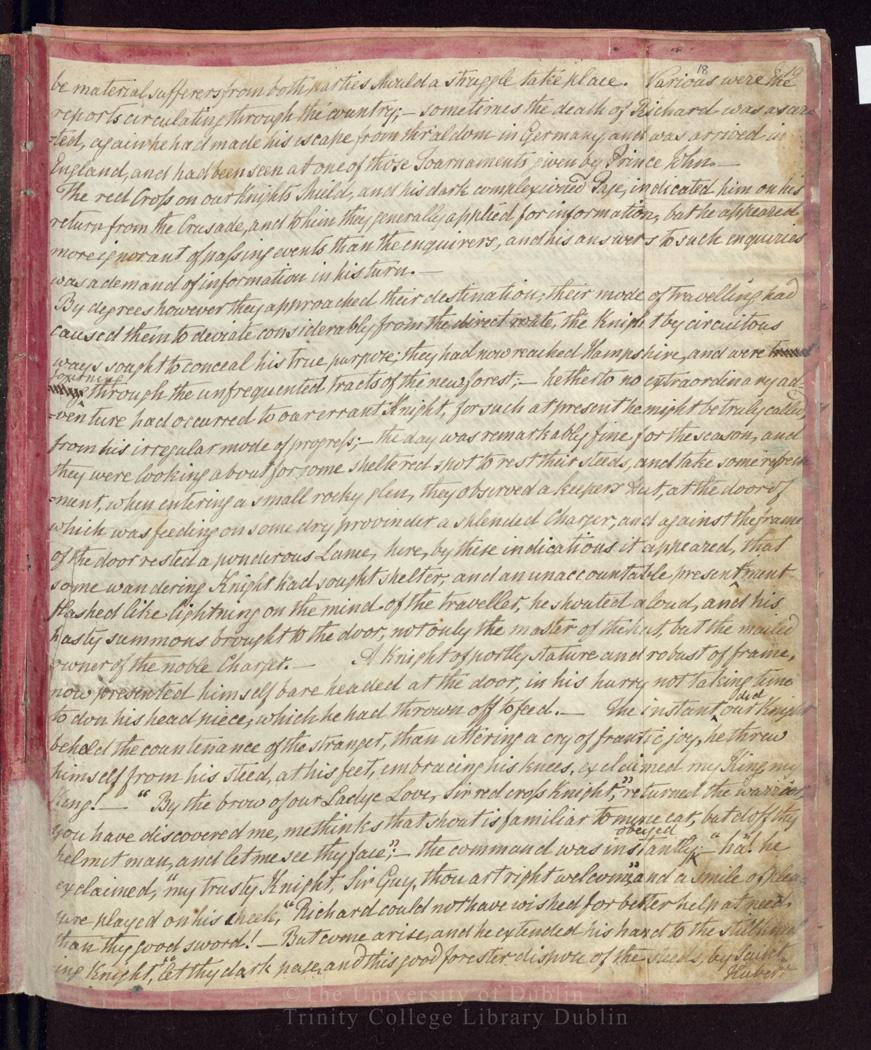 18
19
be material sufferers from both parties should a struggle take place. Various were the
reports circulating through the country; – sometimes the death of Richard was asser
-ted, again he had made his escape from thraldom in Germany and was arrived in
England, and had been seen at one of those Tournaments given by Prince John –
The red Cross on our Knights shield, and his dark complexioned Page, indicated him on his
return from the Crusade, and to him they generally applied for information, but he appeared
more ignorant of passing events than the enquirers, and his answers to such enquiries
was a demand of information in his turn. –
By degrees however they approached their destination, their mode of travelling had
caused them to deviate considerably from the direct route, the Knight by circuitous
ways sought to conceal his true purpose; they had now reached Hampshire, and were
journeying
through the unfrequented tracts of the new forest; – hetherto no extraordinary ad-
-venture had occurred to our errant Knight, for such at present he might be truly called,
from his irregular mode of progress; – the day was remarkably fine for the season, and
they were looking about for some sheltered spot to rest their steeds, and take some refresh
-ment, when entering a small rocky glen, they observed a keepers Hut, at the door of
which was feeding on some dry provinder a splended Charger, and against the frame
of the door rested a ponderous Lance, here, by these indications it appeared, that
some wandering Knight had sought shelter, and an unaccountable presentment
flashed like lightning on the mind of the traveller, he shouted aloud, and his
hasty summons brought to the door, not only the master of the hut, but the mailed
owner of the noble Charger. – A Knight of portly stature and robust of frame,
now presented himself bare headed at the door, in his hurry not taking time
to don his head piece, which he had thrown off to feed. – The instant our Knight
did
beheld the countenance of the stranger, than uttering a cry of frantic joy, he threw
himself from his steed, at his feet, embracing his knees, exclaimed my King, my
King! – "By the brow of our Ladye Love, Sir red cross Knight," returned the warrior,
you have discovered me, methinks that shout is familiar to myne ear, but doff thy
obeyed
helmet man, and let me see thy face"; – the command was instantly – "ha! he
exclaimed, "my trusty Knight, Sir Guy, thou art right welcome" and a smile of plea
sure played on his cheek, "Richard could not have wished for better help at need,
than thy good sword! – But come arise, and he extended his hand to the still kneel
ing Knight, "let thy dark page, and this good forester dispose of the steeds, by Saint
Hubert
© The University of Dublin
Trinity College Library Dublin